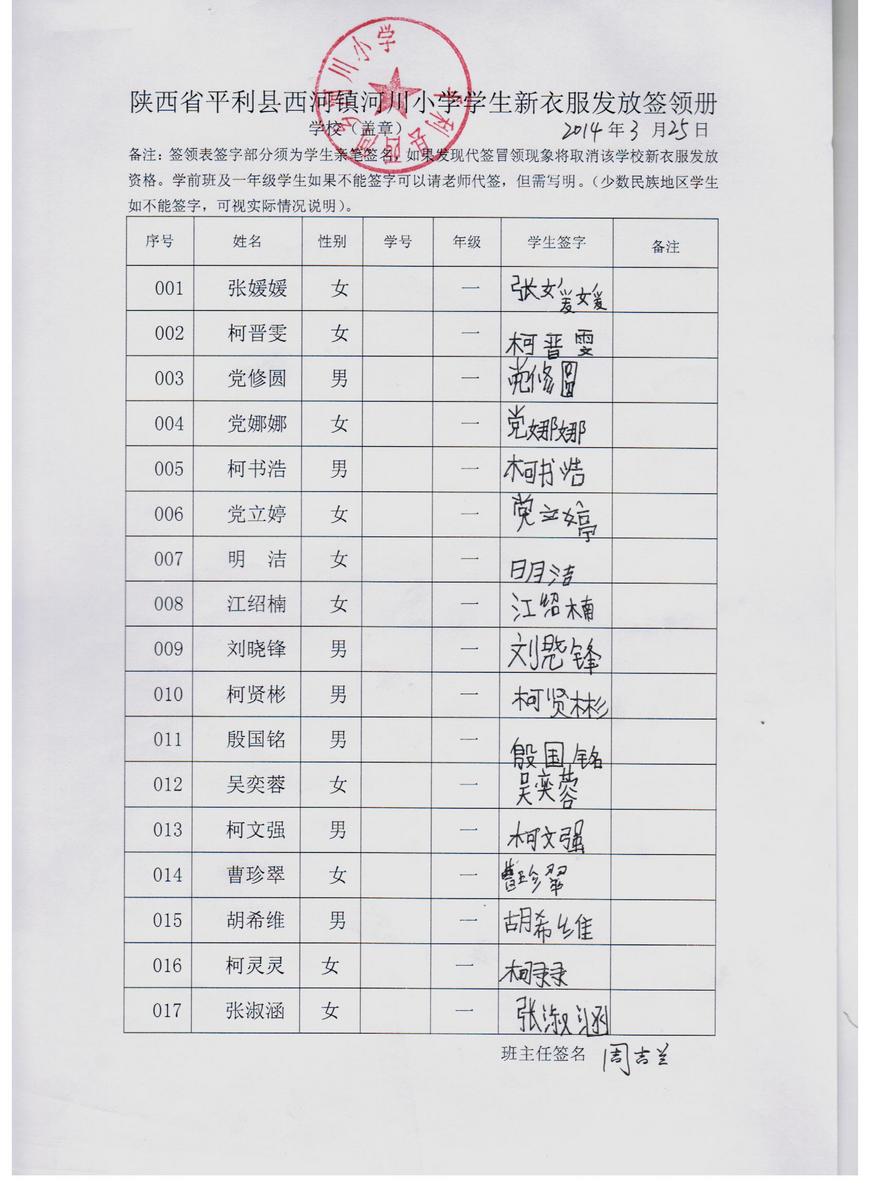 陕西省平利县西河镇河川小学学生新衣服发放签领册
学校（盖章） 2014年3月25日
备注：签领表签字部分须为学生亲笔签名，如果发现代签冒领现象将取消该学校新衣服发放
资格。学前班及一年级学生如果不能签字可以请老师代签，但需写明。（少数民族地区学生
如不能签字，可视实际情况说明）。
序号 姓名 性别 学号 年级 学生签字 备注
001 张媛媛 女 一 张媛媛
002 柯晋雯 女 一 柯晋雯
003 党修圆 男 一 党修圆
004 党娜娜 女 一 党娜娜
005 柯书浩 男 一 柯书浩
006 党立婷 女 一 党立婷
007 明　洁 女 一 明洁
008 江绍楠 女 一 江绍楠
009 刘晓锋 男 一 刘晓锋
010 柯贤彬 男 一 柯贤彬
011 殷国铭 男 一 殷国铭
012 吴奕蓉 女 一 吴奕蓉
013 柯文强 男 一 柯文强
014 曹珍翠 女 一 曹珍翠
015 胡希维 男 一 胡希维
016 柯灵灵 女 一 柯灵灵
017 张淑涵 女 一 张淑涵
班主任签名 周吉兰